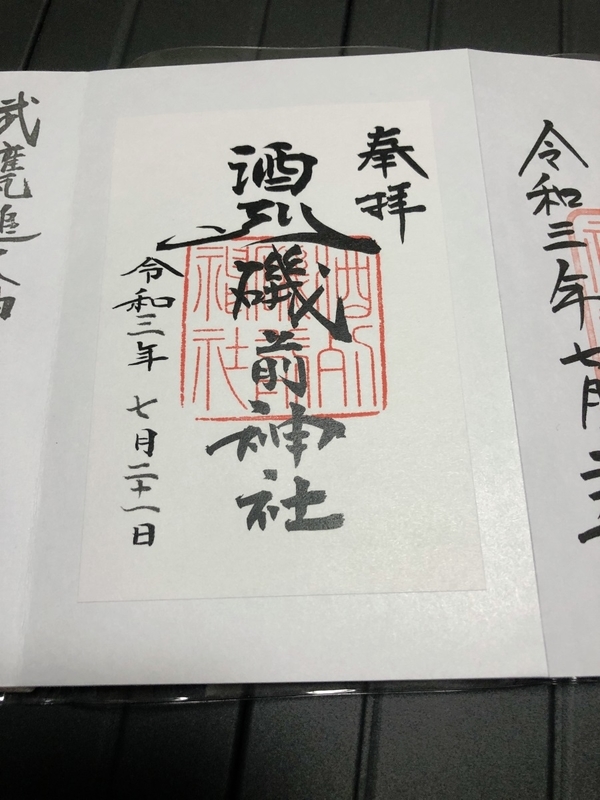 令和三年七月二
奉拝
酒列磯前神社
令和三年 七月二十一日
酒列
磯前
神社
武甕